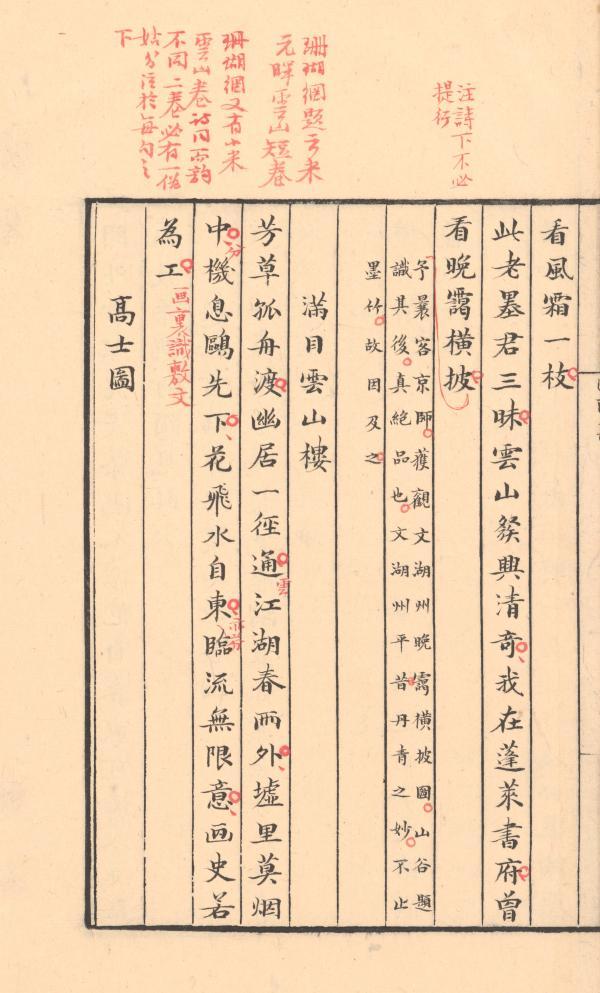 注詩下不必
提行
珊瑚網題云米
元暉雲山短卷
珊瑚網又有小米
雲山卷詩同而韵
不同二卷必有一僞
姑分注於每句之
下
看風霜一枝
此老墨君三昧雲山發興清奇我在蓬萊書府曾
看晚靄橫披
予曩客京師獲觀文湖州晚靄橫披圖山谷題
識其後真絕品也文湖州平昔丹青之妙不止
墨竹故因及之
滿目雲山樓
芳草孤舟渡幽居一徑通江湖春雨外墟里莫烟
雲
中機息鷗先下花飛水自東臨流無限意画史若
分
為工
画裏識敷文
高士圖